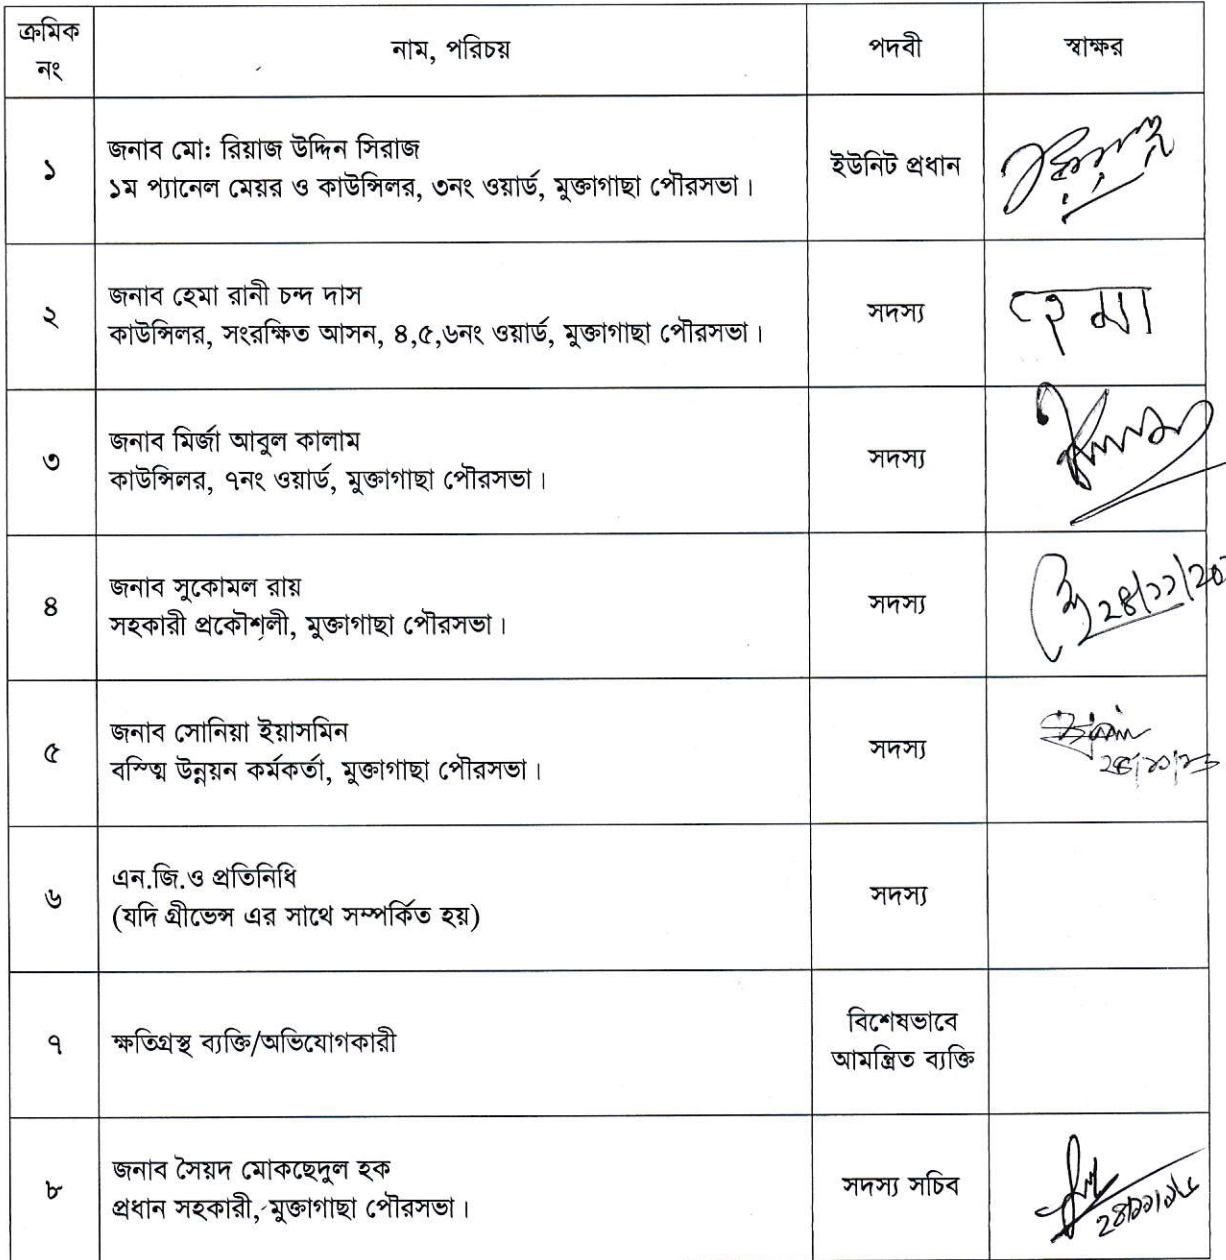 ক্রমিক
নং
নাম, পরিচয়
পদবী
স্বাক্ষর
১
জনাব মো: রিয়াজ উদ্দিন সিরাজ
১ম প্যানেল মেয়র ও কাউন্সিলর, ৩নং ওয়ার্ড, মুক্তাগাছা পৌরসভা।
ইউনিট প্রধান
২
জনাব হেমা রানী চন্দ দাস
কাউন্সিলর, সংরক্ষিত আসন, ৪,৫,৬নং ওয়ার্ড, মুক্তাগাছা পৌরসভা।
সদস্য
হেমা
৩
জনাব মির্জা আবুল কালাম
কাউন্সিলর, ৭নং ওয়ার্ড, মুক্তাগাছা পৌরসভা।
সদস্য
৪
জনাব সুকোমল রায়
সহকারী প্রকৌশলী, মুক্তাগাছা পৌরসভা।
সদস্য
৫
জনাব সোনিয়া ইয়াসমিন
বস্ত্মি উন্নয়ন কর্মকর্তা, মুক্তাগাছা পৌরসভা।
সদস্য
৬
এন.জি.ও প্রতিনিধি
(যদি গ্রীভেন্স এর সাথে সম্পর্কিত হয়)
সদস্য
৭
ক্ষতিগ্রস্থ ব্যক্তি/অভিযোগকারী
বিশেষভাবে
আমন্ত্রিত ব্যক্তি
৮
জনাব সৈয়দ মোকছেদুল হক
প্রধান সহকারী, মুক্তাগাছা পৌরসভা।
সদস্য সচিব